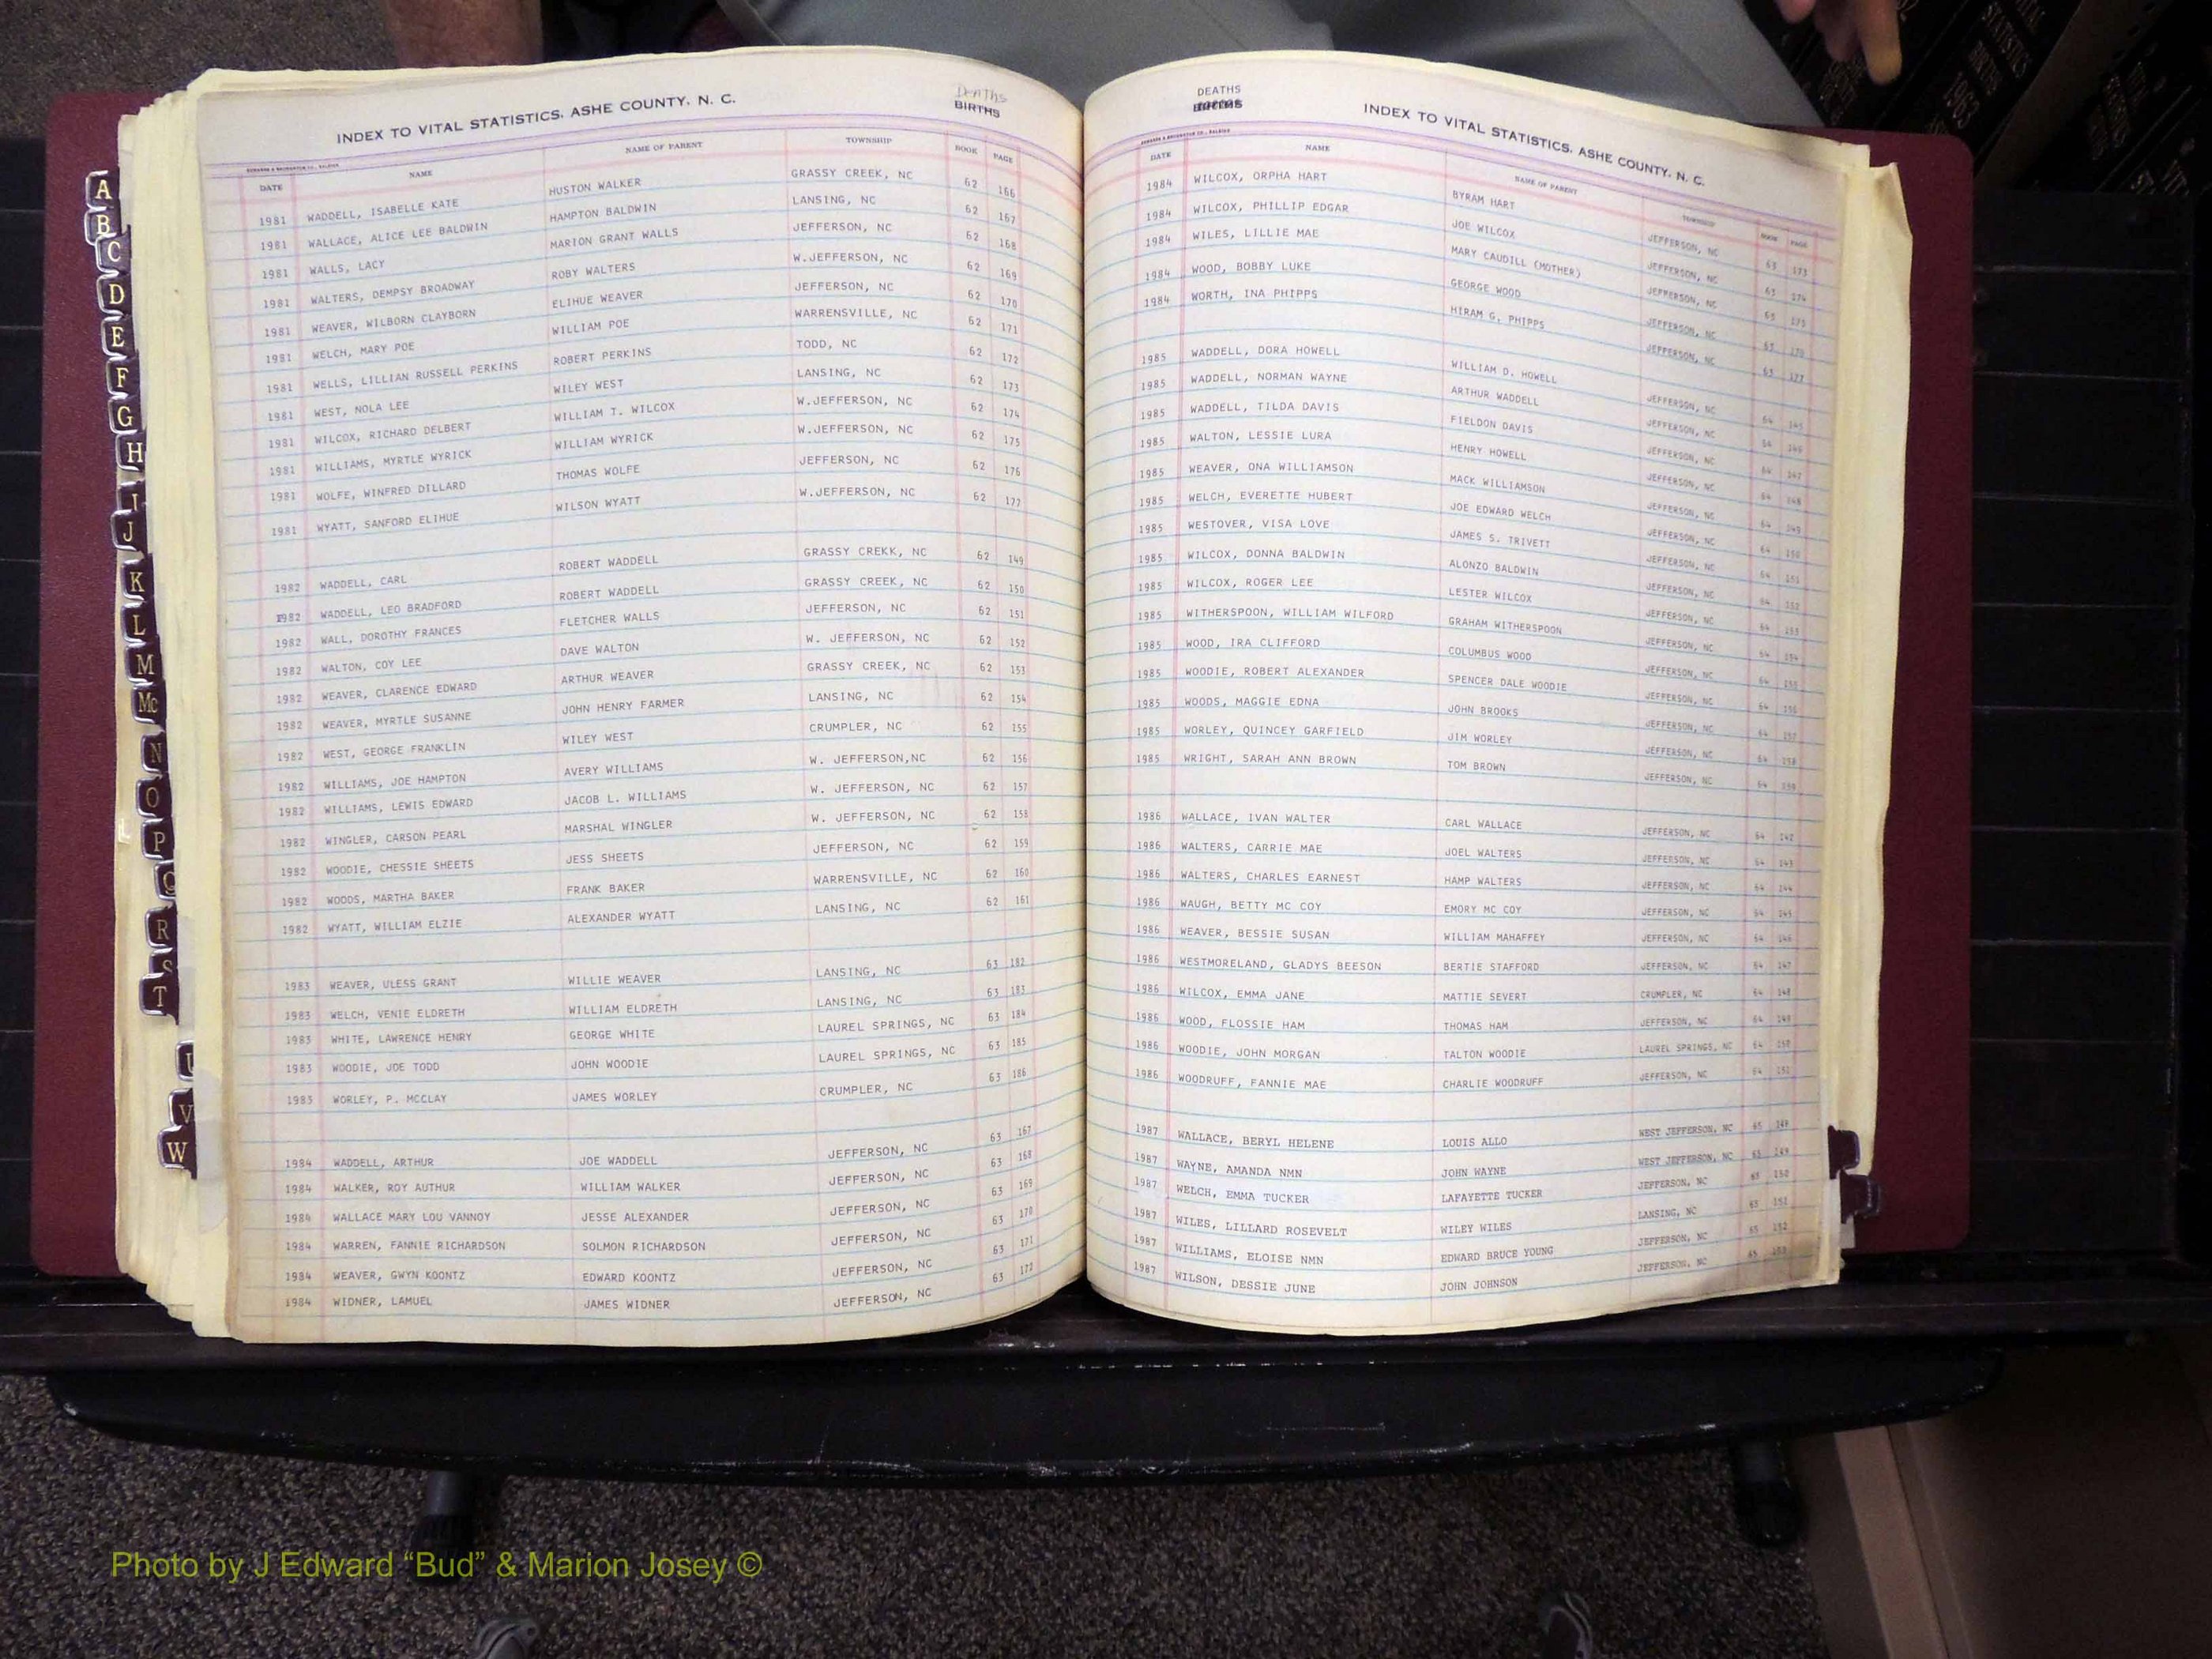 DEATHS
BIRTHS
INDEX TO VITAL STATISTICS. ASHE COUNTY, N. C.
DATE NAME NAME OF PARENT TOWNSHIP BOOK PAGE
1981 WADDELL, ISABELLE KATE HUSTON WALKER GRASSY CREEK, NC 62 166
1981 WALLACE, ALICE LEE BALDWIN HAMPTON BALDWIN LANSING, NC 62 167
1981 WALLS, LACY MARION GRANT WALLS JEFFERSON, NC 62 168
1981 WALTERS, DEMPSY BROADWAY ROBY WALTERS W.JEFFERSON, NC 62 169
1981 WEAVER, WILBORN CLAYBORN ELIHUE WEAVER JEFFERSON, NC 62 170
1981 WELCH, MARY POE WILLIAM POE WARRENSVILLE, NC 62 171
1981 WELLS, LILLIAN RUSSELL PERKINS ROBERT PERKINS TODD, NC 62 172
1981 WEST, NOLA LEE WILEY WEST LANSING, NC 62 173
1981 WILCOX, RICHARD DELBERT WILLIAM T. WILCOX W.JEFFERSON, NC 62 174
1981 WILLIAMS, MYRTLE WYRICK WILLIAM WYRICK W.JEFFERSON, NC 62 175
1981 WOLFE, WINFRED DILLARD THOMAS WOLFE JEFFERSON, NC 62 176
1981 WYATT, SANFORD ELIHUE WILSON WYATT W.JEFFERSON, NC 62 177
1982 WADDELL, CARL ROBERT WADDELL GRASSY CREKK, NC 62 149
1982 WADDELL, LEO BRADFORD ROBERT WADDELL GRASSY CREEK, NC 62 150
1982 WALL, DOROTHY FRANCES FLETCHER WALLS JEFFERSON, NC 62 151
1982 WALTON, COY LEE DAVE WALTON W. JEFFERSON, NC 62 152
1982 WEAVER, CLARENCE EDWARD ARTHUR WEAVER GRASSY CREEK, NC 62 153
1982 WEAVER, MYRTLE SUSANNE JOHN HENRY FARMER LANSING, NC 62 154
1982 WEST, GEORGE FRANKLIN WILEY WEST CRUMPLER, NC 62 155
1982 WILLIAMS, JOE HAMPTON AVERY WILLIAMS W. JEFFERSON,NC 62 156
1982 WILLIAMS, LEWIS EDWARD JACOB L. WILLIAMS W. JEFFERSON, NC 62 157
1982 WINGLER, CARSON PEARL MARSHAL WINGLER W. JEFFERSON, NC 62 158
1982 WOODIE, CHESSIE SHEETS JESS SHEETS JEFFERSON, NC 62 159
1982 WOODS, MARTHA BAKER FRANK BAKER WARRENSVILLE, NC 62 160
1982 WYATT, WILLIAM ELZIE ALEXANDER WYATT LANSING, NC 62 161
1983 WEAVER, ULESS GRANT WILLIE WEAVER LANSING, NC 63 182
1983 WELCH, VENIE ELDRETH WILLIAM ELDRETH LANSING, NC 63 183
1983 WHITE, LAWRENCE HENRY GEORGE WHITE LAUREL SPRINGS, NC 63 184
1983 WOODIE, JOE TODD JOHN WOODIE LAUREL SPRINGS, NC 63 185
1983 WORLEY, P. MCCLAY JAMES WORLEY CRUMPLER, NC 63 186
1984 WADDELL, ARTHUR JOE WADDELL JEFFERSON, NC 63 167
1984 WALKER, ROY AUTHUR WILLIAM WALKER JEFFERSON, NC 63 168
1984 WALLACE MARY LOU VANNOY JESSE ALEXANDER JEFFERSON, NC 63 169
1984 WARREN, FANNIE RICHARDSON SOLMON RICHARDSON JEFFERSON, NC 63 170
1984 WEAVER, GWYN KOONTZ EDWARD KOONTZ JEFFERSON, NC 63 171
1984 WIDNER, LAMUEL JAMES WIDNER JEFFERSON, NC 63 172
DEATHS
INDEX TO VITAL STATISTICS. ASHE COUNTY, N. C.
DATE NAME NAME OF PARENT TOWNSHIP BOOK PAGE
1984 WILCOX, ORPHA HART BYRAM HART JEFFERSON, NC 63 173
1984 WILCOX, PHILLIP EDGAR JOE WILCOX JEFFERSON, NC 63 174
1984 WILES, LILLIE MAE MARY CAUDILL (MOTHER) JEFFERSON, NC 63 175
1984 WOOD, BOBBY LUKE GEORGE WOOD JEFFERSON, NC 63
1984 WORTH, INA PHIPPS HIRAM G. PHIPPS JEFFERSON, NC 63 177
1985 WADDELL, DORA HOWELL WILLIAM D. HOWELL JEFFERSON, NC 64 145
1985 WADDELL, NORMAN WAYNE ARTHUR WADDELL JEFFERSON, NC 146
1985 WADDELL, TILDA DAVIS FIELDON DAVIS JEFFERSON, NC 64 147
1985 WALTON, LESSIE LURA HENRY HOWELL JEFFERSON, NC 64 148
1985 WEAVER, ONA WILLIAMSON MACK WILLIAMSON JEFFERSON, NC 64 149
1985 WELCH, EVERETTE HUBERT JOE EDWARD WELCH JEFFERSON, NC 64 150
1985 WESTOVER, VISA LOVE JAMES S. TRIVETT JEFFERSON, NC 64 151
1985 WILCOX, DONNA BALDWIN ALONZO BALDWIN JEFFERSON, NC 64 152
1985 WILCOX, ROGER LEE LESTER WILCOX JEFFERSON, NC 64 153
1985 WITHERSPOON, WILLIAM WILFORD GRAHAM WITHERSPOON JEFFERSON, NC 64 154
1985 WOOD, IRA CLIFFORD COLUMBUS WOOD JEFFERSON, NC 64 155
1985 WOODIE, ROBERT ALEXANDER SPENCER DALE WOODIE JEFFERSON, NC 64 156
1985 WOODS, MAGGIE EDNA JOHN BROOKS JEFFERSON, NC 64 157
1985 WORLEY, QUINCEY GARFIELD JIM WORLEY JEFFERSON, NC 64 158
1985 WRIGHT, SARAH ANN BROWN TOM BROWN JEFFERSON, NC 64 159
1986 WALLACE, IVAN WALTER CARL WALLACE JEFFERSON, NC 64 142
1986 WALTERS, CARRIE MAE JOEL WALTERS JEFFERSON, NC 64 143
1986 WALTERS, CHARLES EARNEST HAMP WALTERS JEFFERSON, NC 64 144
1986 WAUGH, BETTY MC COY EMORY MC COY JEFFERSON, NC 64 145
1986 WEAVER, BESSIE SUSAN WILLIAM MAHAFFEY JEFFERSON, NC 64 146
1986 WESTMORELAND, GLADYS BEESON BERTIE STAFFORD JEFFERSON, NC 64 147
1986 WILCOX, EMMA JANE MATTIE SEVERT CRUMPLER, NC 64 148
1986 WOOD, FLOSSIE HAM THOMAS HAM JEFFERSON, NC 64 149
1986 WOODIE, JOHN MORGAN TALTON WOODIE LAUREL SPRINGS, NC 64 150
1986 WOODRUFF, FANNIE MAE CHARLIE WOODRUFF JEFFERSON, NC 64 151
1987 WALLACE, BERYL HELENE LOUIS ALLO WEST JEFFERSON, NC 65 148
1987 WAYNE, AMANDA NMN JOHN WAYNE WEST JEFFERSON, NC 65 149
1987 WELCH, EMMA TUCKER LAFAYETTE TUCKER JEFFERSON, NC 65 150
1987 WILES, LILLARD ROSEVELT WILEY WILES LANSING, NC 65 151
1987 WILLIAMS, ELOISE NMN EDWARD BRUCE YOUNG JEFFERSON, NC 65 152
1987 WILSON, DESSIE JUNE JOHN JOHNSON JEFFERSON, NC 65 153
A
B
C
D
E
F
G
H
I
J
K
L
M
Mc
N
O
P
Q
R
S
T
U
V
W
VITAL STATISTICS BIRTHS 1963
Photo by J Edward “Bud” & Marion Josey ©